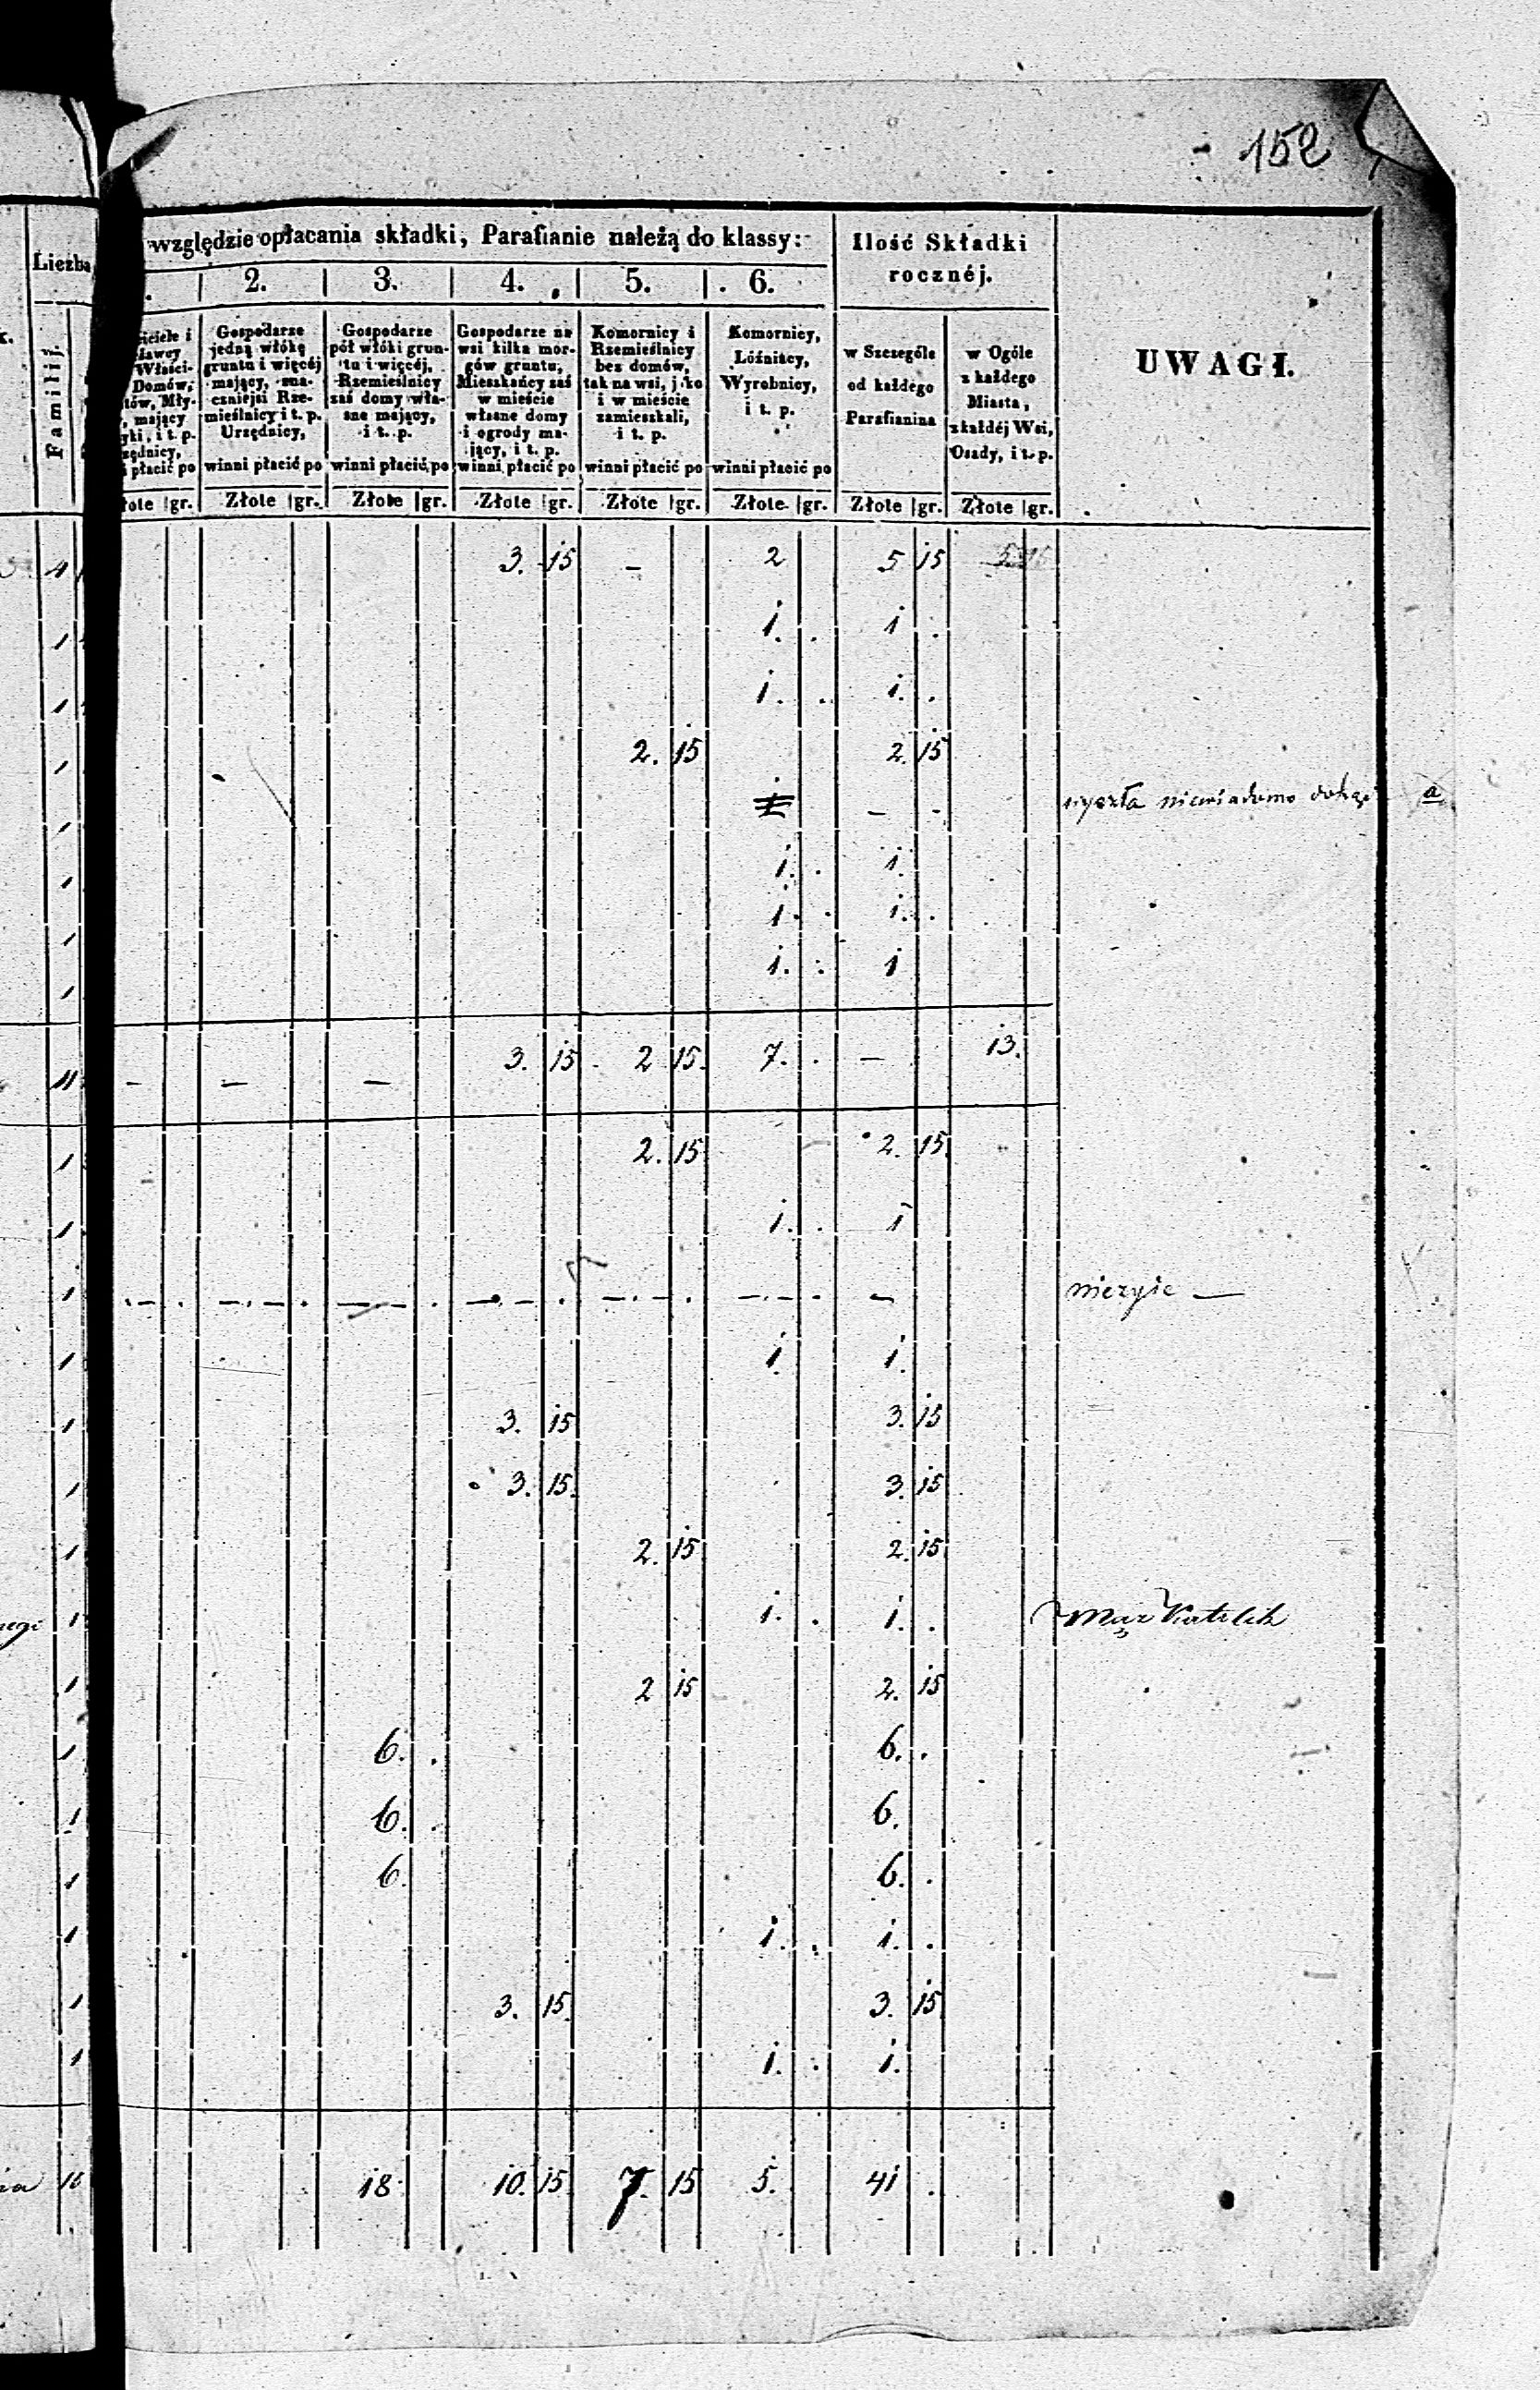 152
względzie opłacania składki, Parafianie należą do klassy:
Ilość Składki
rocznéj.
Liczba
2. 3. 4. 5. 6.
UWAGI.
Familij.
Gospodarze
jedną włókę
gruntu i więcéj
mający, zna-
czniejsi Rze-
mieślnicy i t. p.
Urzędnicy,
winni płacić po
Gospodarze
pół włóki grun-
tu i więcéj,
Rzemieślnicy
zaś domy wła-
sne mający,
i t. p.
winni płacić po
Gospodarze na
wsi kilka mor-
gów gruntu,
Mieszkańcy zaś
w mieście
własne domy
i ogrody ma-
jący, i t. p.
winni płacić po
Komornicy i
Rzemieślnicy
bez domów,
tak na wsi, jako
i w mieście
zamieszkali,
i t. p.
winni płacić po
Komornicy,
Lóźniacy,
Wyrobnicy,
i t. p.
winni płacić po
w Szczególe
od każdego
Parafianina
w Ogóle
z każdego
Miasta,
z każdéj Wsi,
Osady, i t. p.
gr. Złote gr. Złote gr. Złote gr. Złote gr. Złote gr. Złote gr. Złote gr.
3. 15 – 2 5 15
1 1. 1
1 1. 1.
1 2. 15 2. 15
1 – - wyszła niewiadomo dokąd a
1 1. 1.
1 1. 1.
1 1. 1
11 – – – 3. 15 2 15. 7. – 13.
1 2. 15 2. 15.
1 1. 1
1 – nieżyie —
1 1. 1.
1 3. 15 3. 15
1 3. 15. 3. 15
1 2. 15 2. 15
1 1. 1. Mąż Katolik
1 2 15 2. 15
1 6. 6.
1 6. 6.
1 6. 6.
1 1. 1.
1 3. 15. 3. 15
1 1. 1.
16 18 10. 15. 7. 15 5. 41